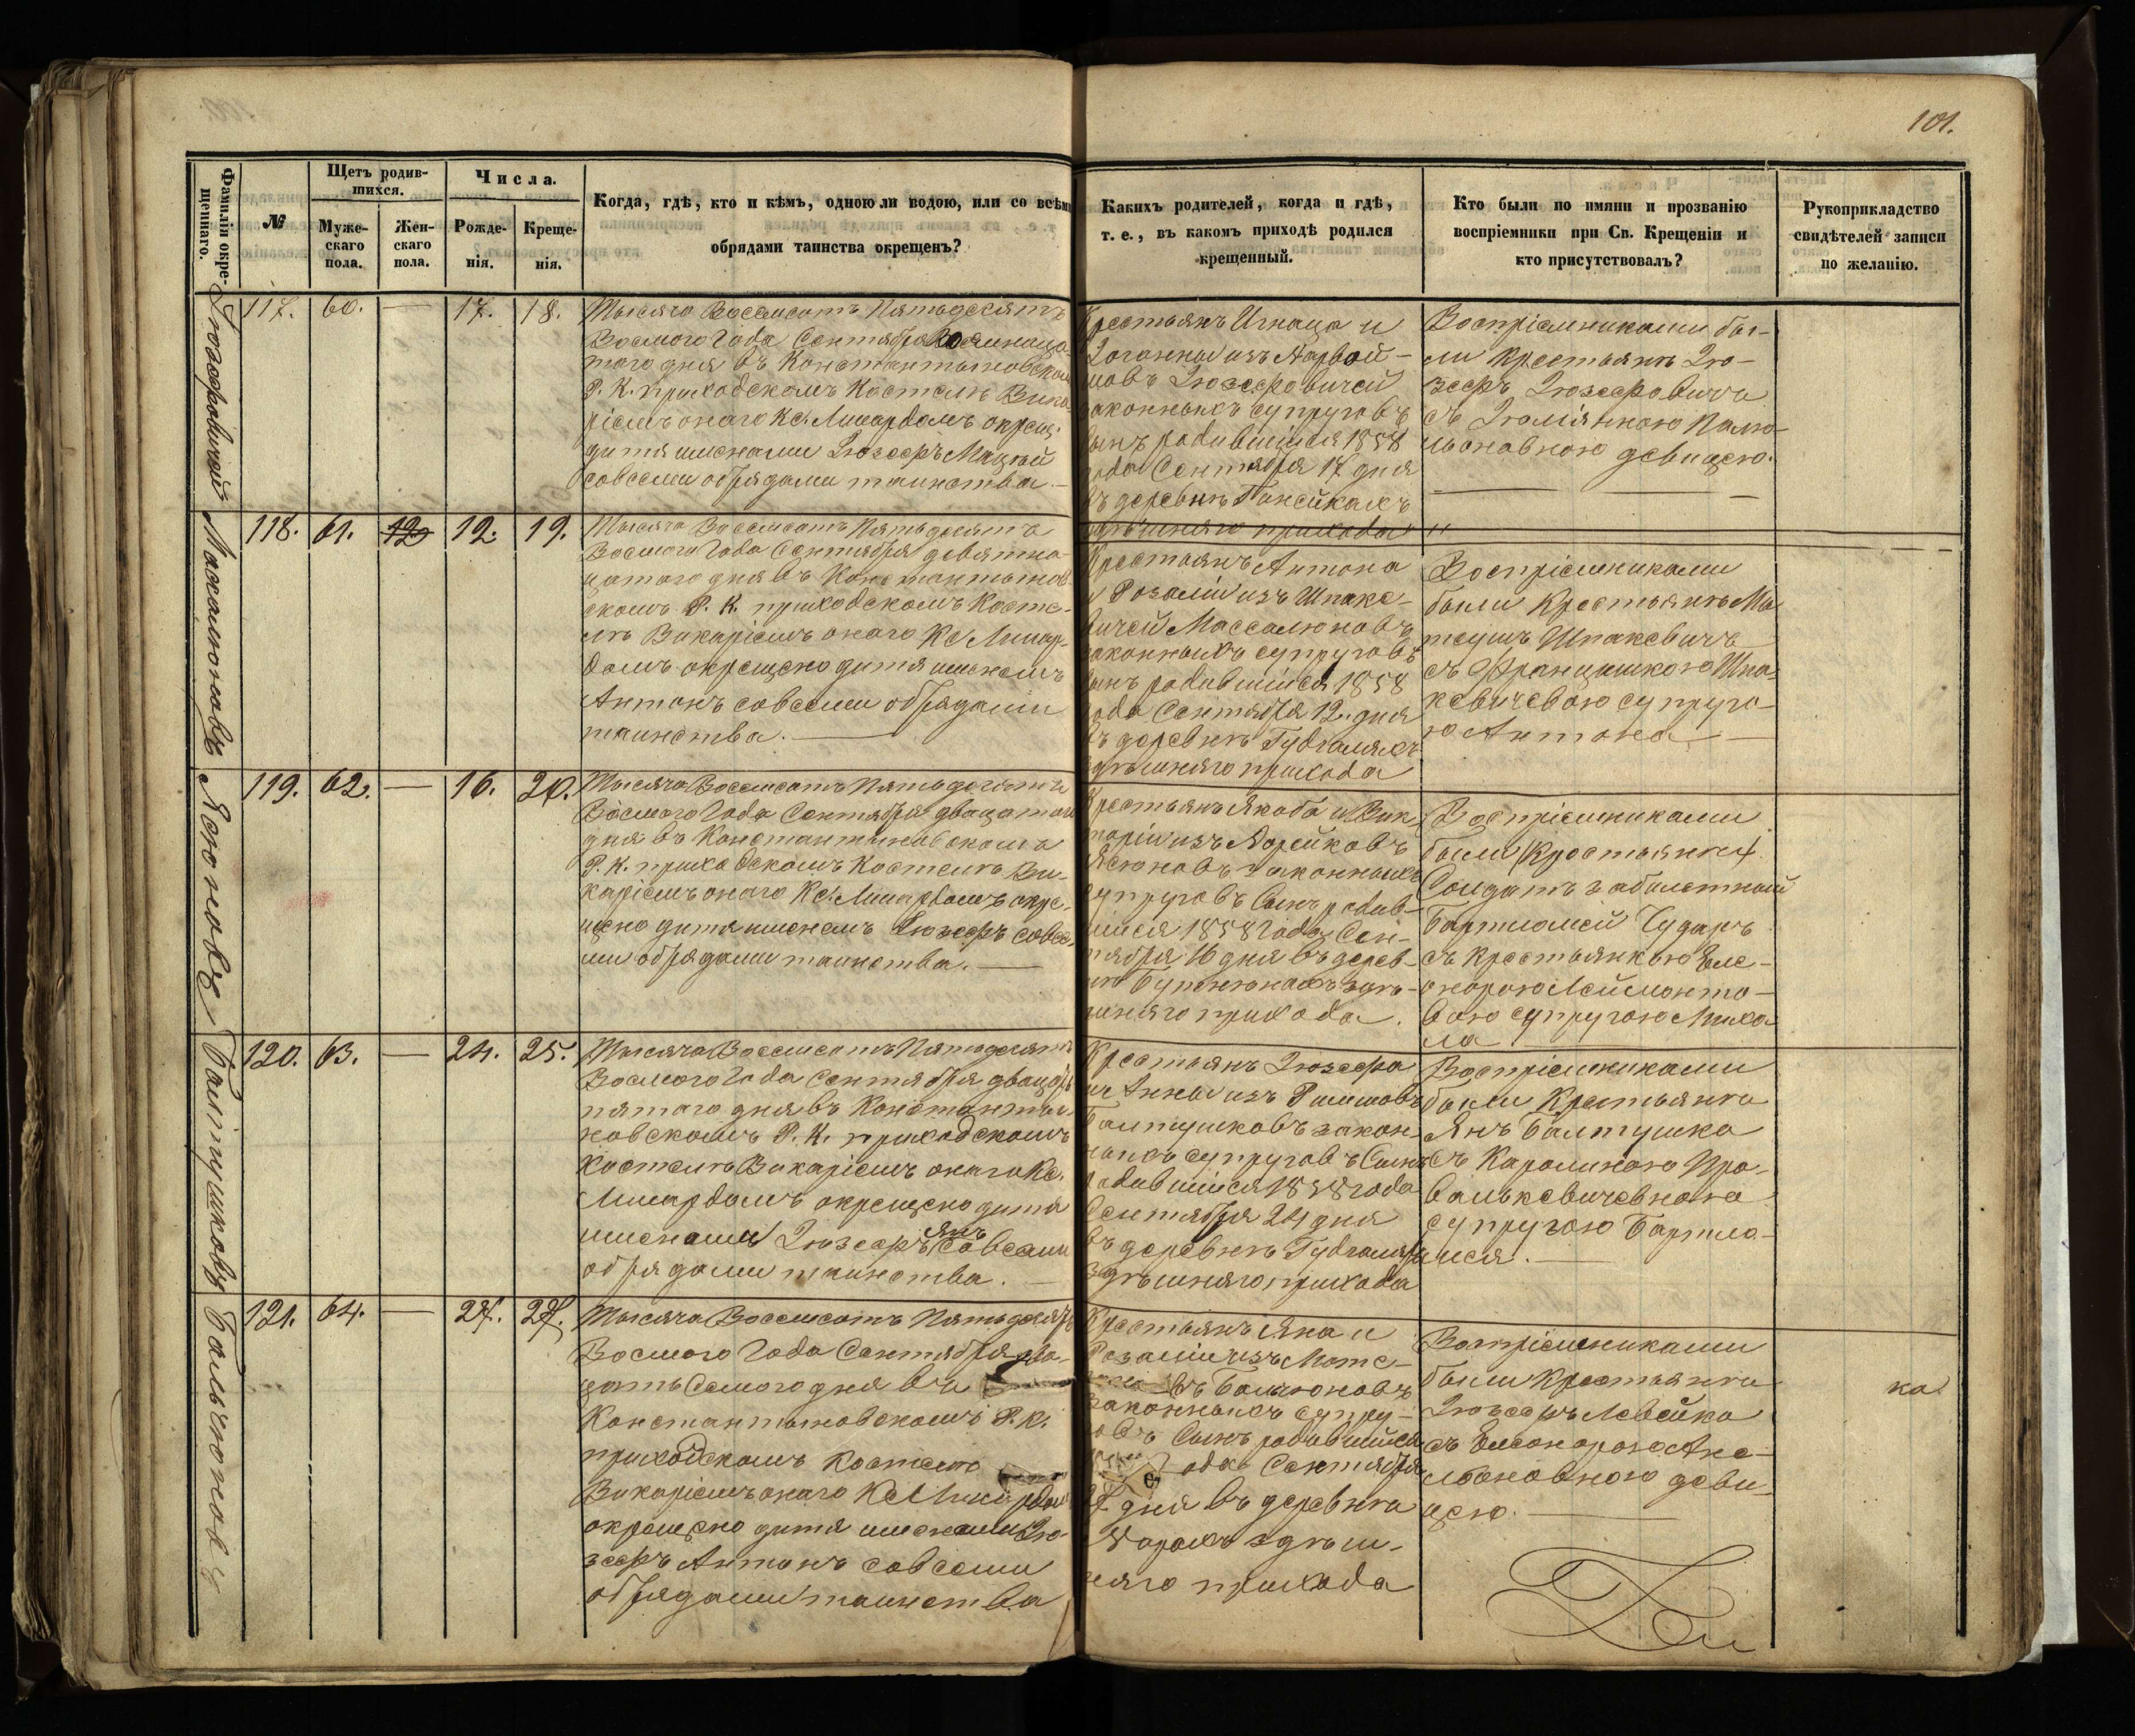 101.
Фамиліи окре-
щеннаго.
№
Щетъ родив-
шихся.
Муже-
скаго
пола.
Жен-
скаго
пола.
Числа.
Рожде-
нія.
Креще-
нія.
Когда, гдѣ, кто и кѣмъ, одною ли водою, или со всѣми
обрядами таинства окрещенъ?
Какихъ родителей, когда и гдѣ,
т. е., въ какомъ приходѣ родился
крещенный.
Кто были по имяни и прозванію
воспріемники при Св. Крещеніи и
кто присутствовалъ?
Рукоприкладство
свидѣтелей записи
по желанію.
Іюзефовичей
117. 60. — 17. 18.
Тысяча Восемсотъ Пятьдесятъ
Восмого Года Сентября Восемнадца-
того дня въ Константыновском
Р. К. приходскомъ Костелѣ Вика-
ріемъ онаго Кс. Минардомъ окрещ.
дитя именами Іюзефъ Мацѣй
совсеми обрядами таинства. —
Крестьянъ Игнаца и
Іоганны изъ
Іюзефовичей
законныхъ супруговъ
сынъ родившійся 1858
года Сентября 17 дня
въ деревнѣ
здѣшняго прихода
Воспріемниками бы-
ли Крестьянъ Ію-
зефъ Іюзефовичъ
съ
девицею.
Массалюновъ
118. 61. 12 12. 19.
Тысяча Восемсотъ Пятьдесятъ
Восмого Года Сентября девятна-
цатого дня въ Константынов-
скомъ Р. К. приходскомъ Косте-
лѣ Викаріемъ онаго Кс Минар-
домъ окрещено дитя именемъ
Антонъ совсеми обрядами
таинства. —
Крестьянъ Антона
и Розаліи изъ Шпаке-
вичей Массалюновъ
законныхъ супруговъ
сынъ родившійся 1858
года Сентября 12. дня
въ деревнѣ Гудгаляхъ
здѣшняго прихода
Воспріемниками
были Крестьянъ Ма
теушъ Шпакевичъ
съ Францишкою Шпа-
кевичевою супруго-
ю Антона —
Ясюновъ
119. 62. — 16. 20.
Тысяча Восемсотъ Пятьдесятъ
Восмого Года Сентября двацатого
дня въ Константиновскомъ
Р. К. приходскомъ Костелѣ Ви-
каріемъ онаго Кс. Минардомъ окре-
щено дитя именемъ Іюзефъ совсе-
ми обрядами таинства. —
Крестьянъ Якоба и Вик-
торіи изъ
Ясюновъ законныхъ
супруговъ Сынъ родив-
шійся 1858 Года Сен-
тября 16 дня въ дерев-
нѣ здѣ-
шняго прихода.
Воспріемниками
были Крестьянкі
Солдатъ забилетный
Бартломей Чударъ
съ Крестьянкою Еле-
онорою Мсймонто-
вою супругою Миха
ла
Балтушковъ
120. 63. — 24. 25.
Тысяча Восемсотъ Пятьдесятъ
Восмого Года Сентября двацать
пятого дня въ Константы-
новскомъ Р. К. приходскомъ
Костелѣ Викаріемъ онаго Кс.
Минардомъ окрещено дитя
именами Іюзефъ Янъ совсеми
обрядами таинства. —
Крестьянъ Іюзефа
и Анны изъ
Балтушковъ закон-
ныхъ супруговъ Сынъ
родившійся 1858 года
Сентября 24 дня
въ деревнѣ Гудгаляхъ
здѣшняго прихода
Воспріемниками
были Крестьяне
Янъ Балтушка
съ Каролиною Про-
вилькевичевною
супругою Бартло-
мея. —
Бальчюновъ
121. 64. — 27. 27.
Тысяча Восемсотъ Пятьдесятъ
Восмого Года Сентября два-
цать Семого дня въ
Константыновскомъ Р. К.
приходскомъ Костелѣ
Викаріемъ онаго Кс Минардомъ
окрещено дитя именами Ію-
зефъ Антонъ совсеми
обрядами таинства
Крестьянъ Яна и
Розаліи изъ Моте-
въ Бальчюновъ
законныхъ супру-
говъ Сынъ родившійся
года Сентября
27 дня въ деревнѣ
здѣш-
няго прихода
Воспріемниками
были Крестьяне
Іюзефъ Левейко
съ Елеонорою
девиц-
цею. —
ка.